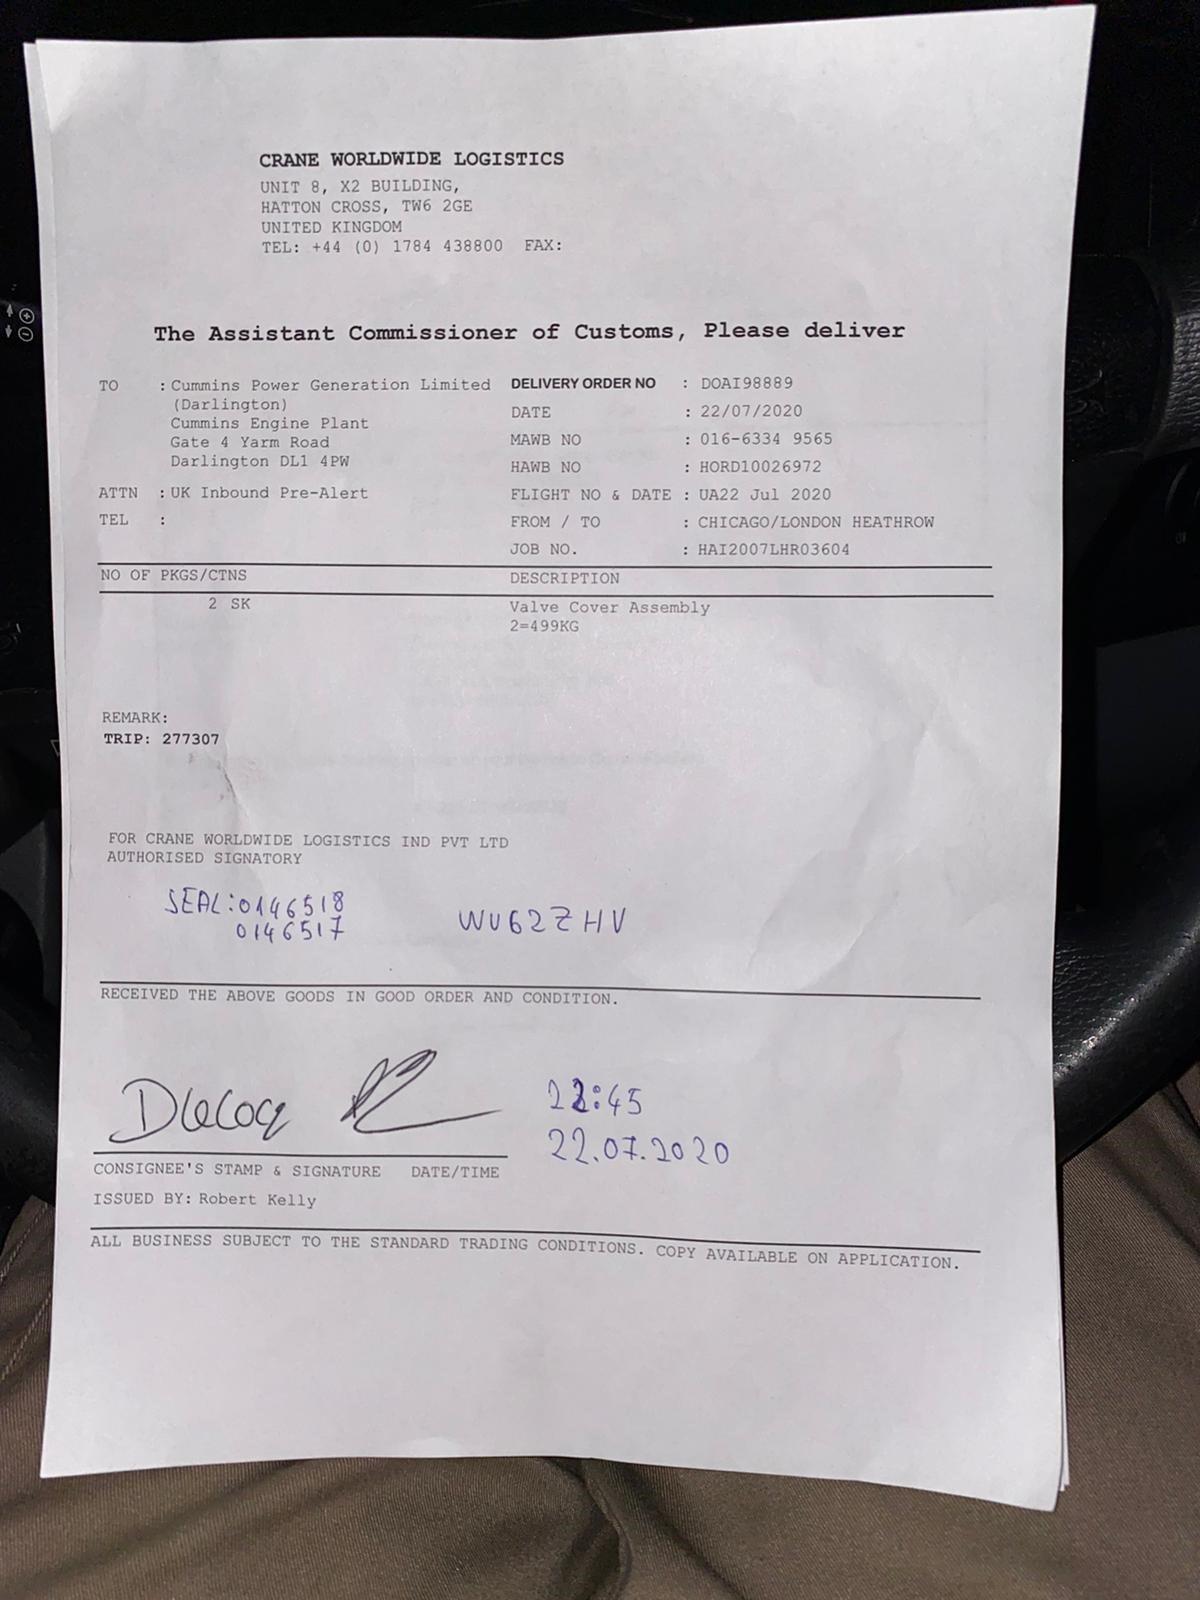 CRANE WORLDWIDE LOGISTICS
UNIT 8, X2 BUILDING,
HATTON CROSS, TW6 2GE
UNITED KINGDOM
TEL: +44 (0) 1784 438800 FAX:
The Assistant Commissioner of Customs, Please deliver
TO : Cummins Power Generation Limited
(Darlington)
Cummins Engine Plant
Gate 4 Yarm Road
Darlington DL1 4PW
ATTN : UK Inbound Pre-Alert
TEL :
DELIVERY ORDER NO : DOAI98889
DATE : 22/07/2020
MAWB NO : 016-6334 9565
HAWB NO : HORD10026972
FLIGHT NO & DATE : UA22 Jul 2020
FROM / TO : CHICAGO/LONDON HEATHROW
JOB NO. : HAI2007LHR03604
NO OF PKGS/CTNS DESCRIPTION
2 SK Valve Cover Assembly
2=499KG
REMARK:
TRIP: 277307
FOR CRANE WORLDWIDE LOGISTICS IND PVT LTD
AUTHORISED SIGNATORY
SEAL:0146518
0146517
WU62ZHV
RECEIVED THE ABOVE GOODS IN GOOD ORDER AND CONDITION.
:45
22.07.2020
CONSIGNEE'S STAMP & SIGNATURE DATE/TIME
ISSUED BY: Robert Kelly
ALL BUSINESS SUBJECT TO THE STANDARD TRADING CONDITIONS. COPY AVAILABLE ON APPLICATION.